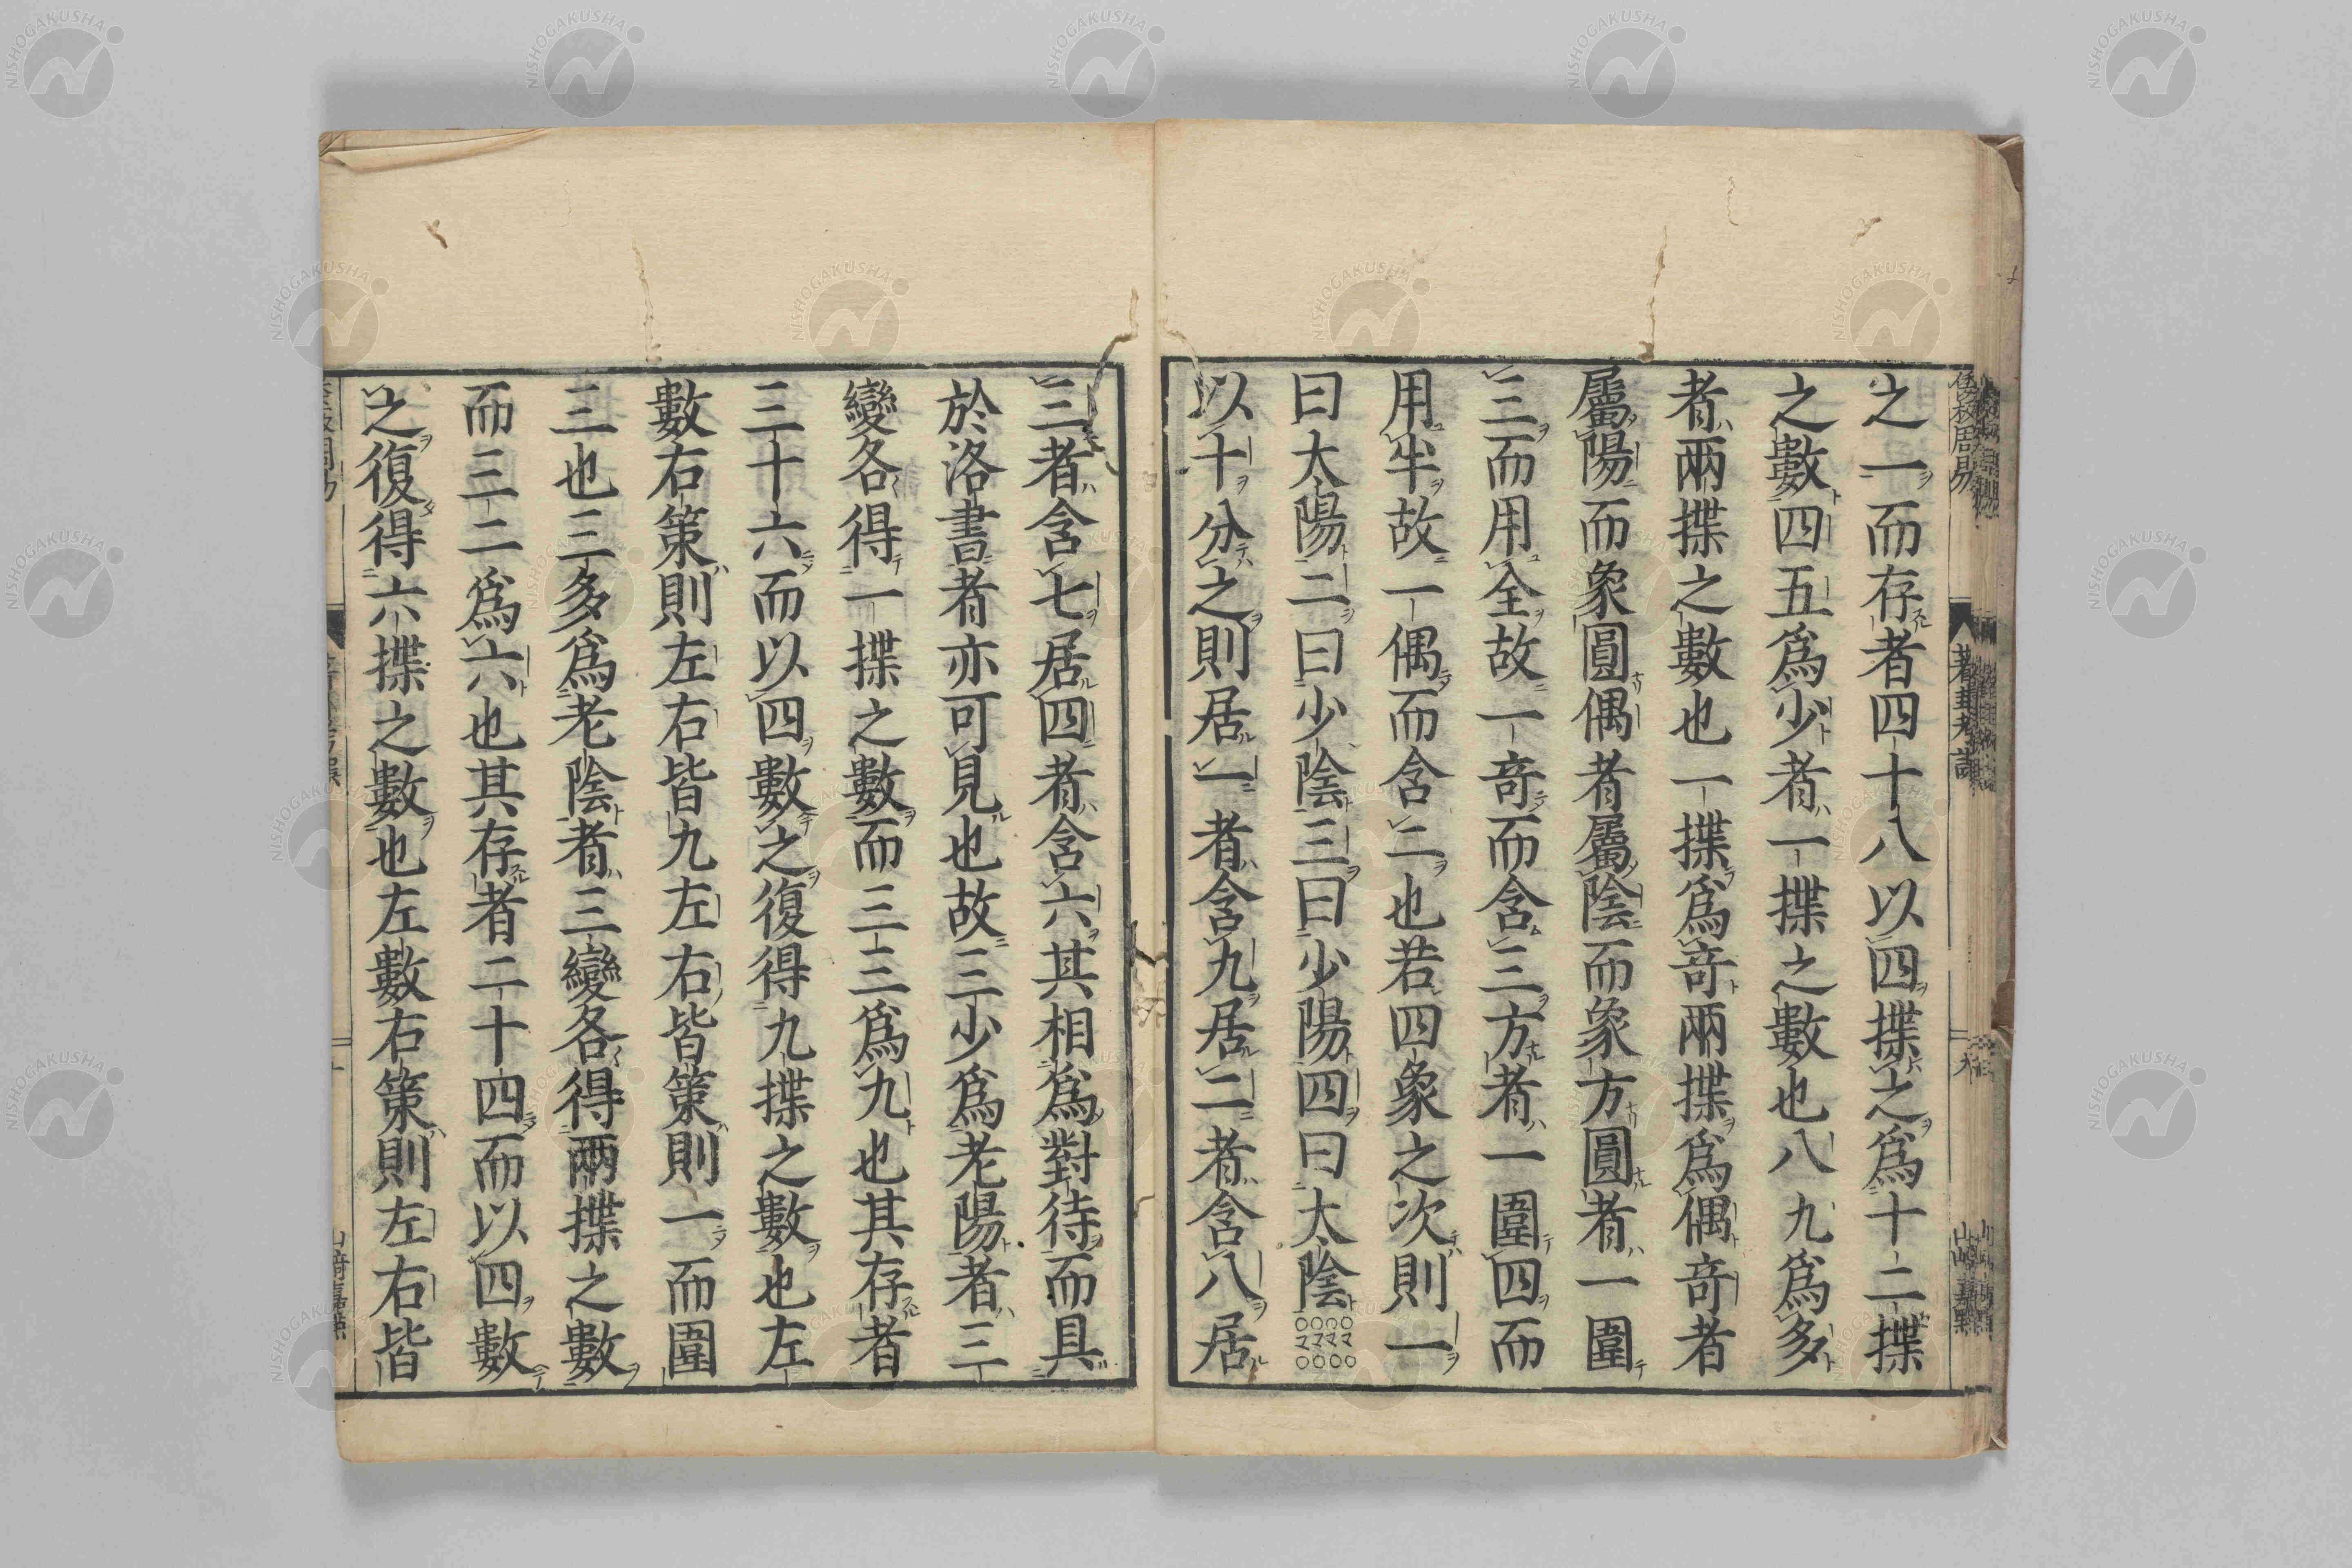 倭板周易
蓍卦考誤
九
山崎嘉點
之一而存者四十八以四揲之爲十二揲
之數四五爲少者一揲之數也八九爲多
者兩揲之數也一揲爲奇兩揲爲偶奇者
屬陽而象圓偶者屬陰而象方圓者一圍
三而用全故一奇而含三方者一圍四而
用半故一偶而含二也若四象之次則一
曰太陽二曰少陰三曰少陽四曰太陰
以十分之則居一者含九居二者含八居
三者含七居四者含六其相爲對待而具
於洛書者亦可見也故三少爲老陽者三
變各得一揲之數而三三爲九也其存者
三十六而以四數之復得九揲之數也左
數右策則左右皆九左右皆策則一而圍
三也三多爲老陰者三變各得兩揲之數
而三二爲六也其存者二十四而以四數
之復得六揲之數也左數右策則左右皆
NISHOGAKUSHA